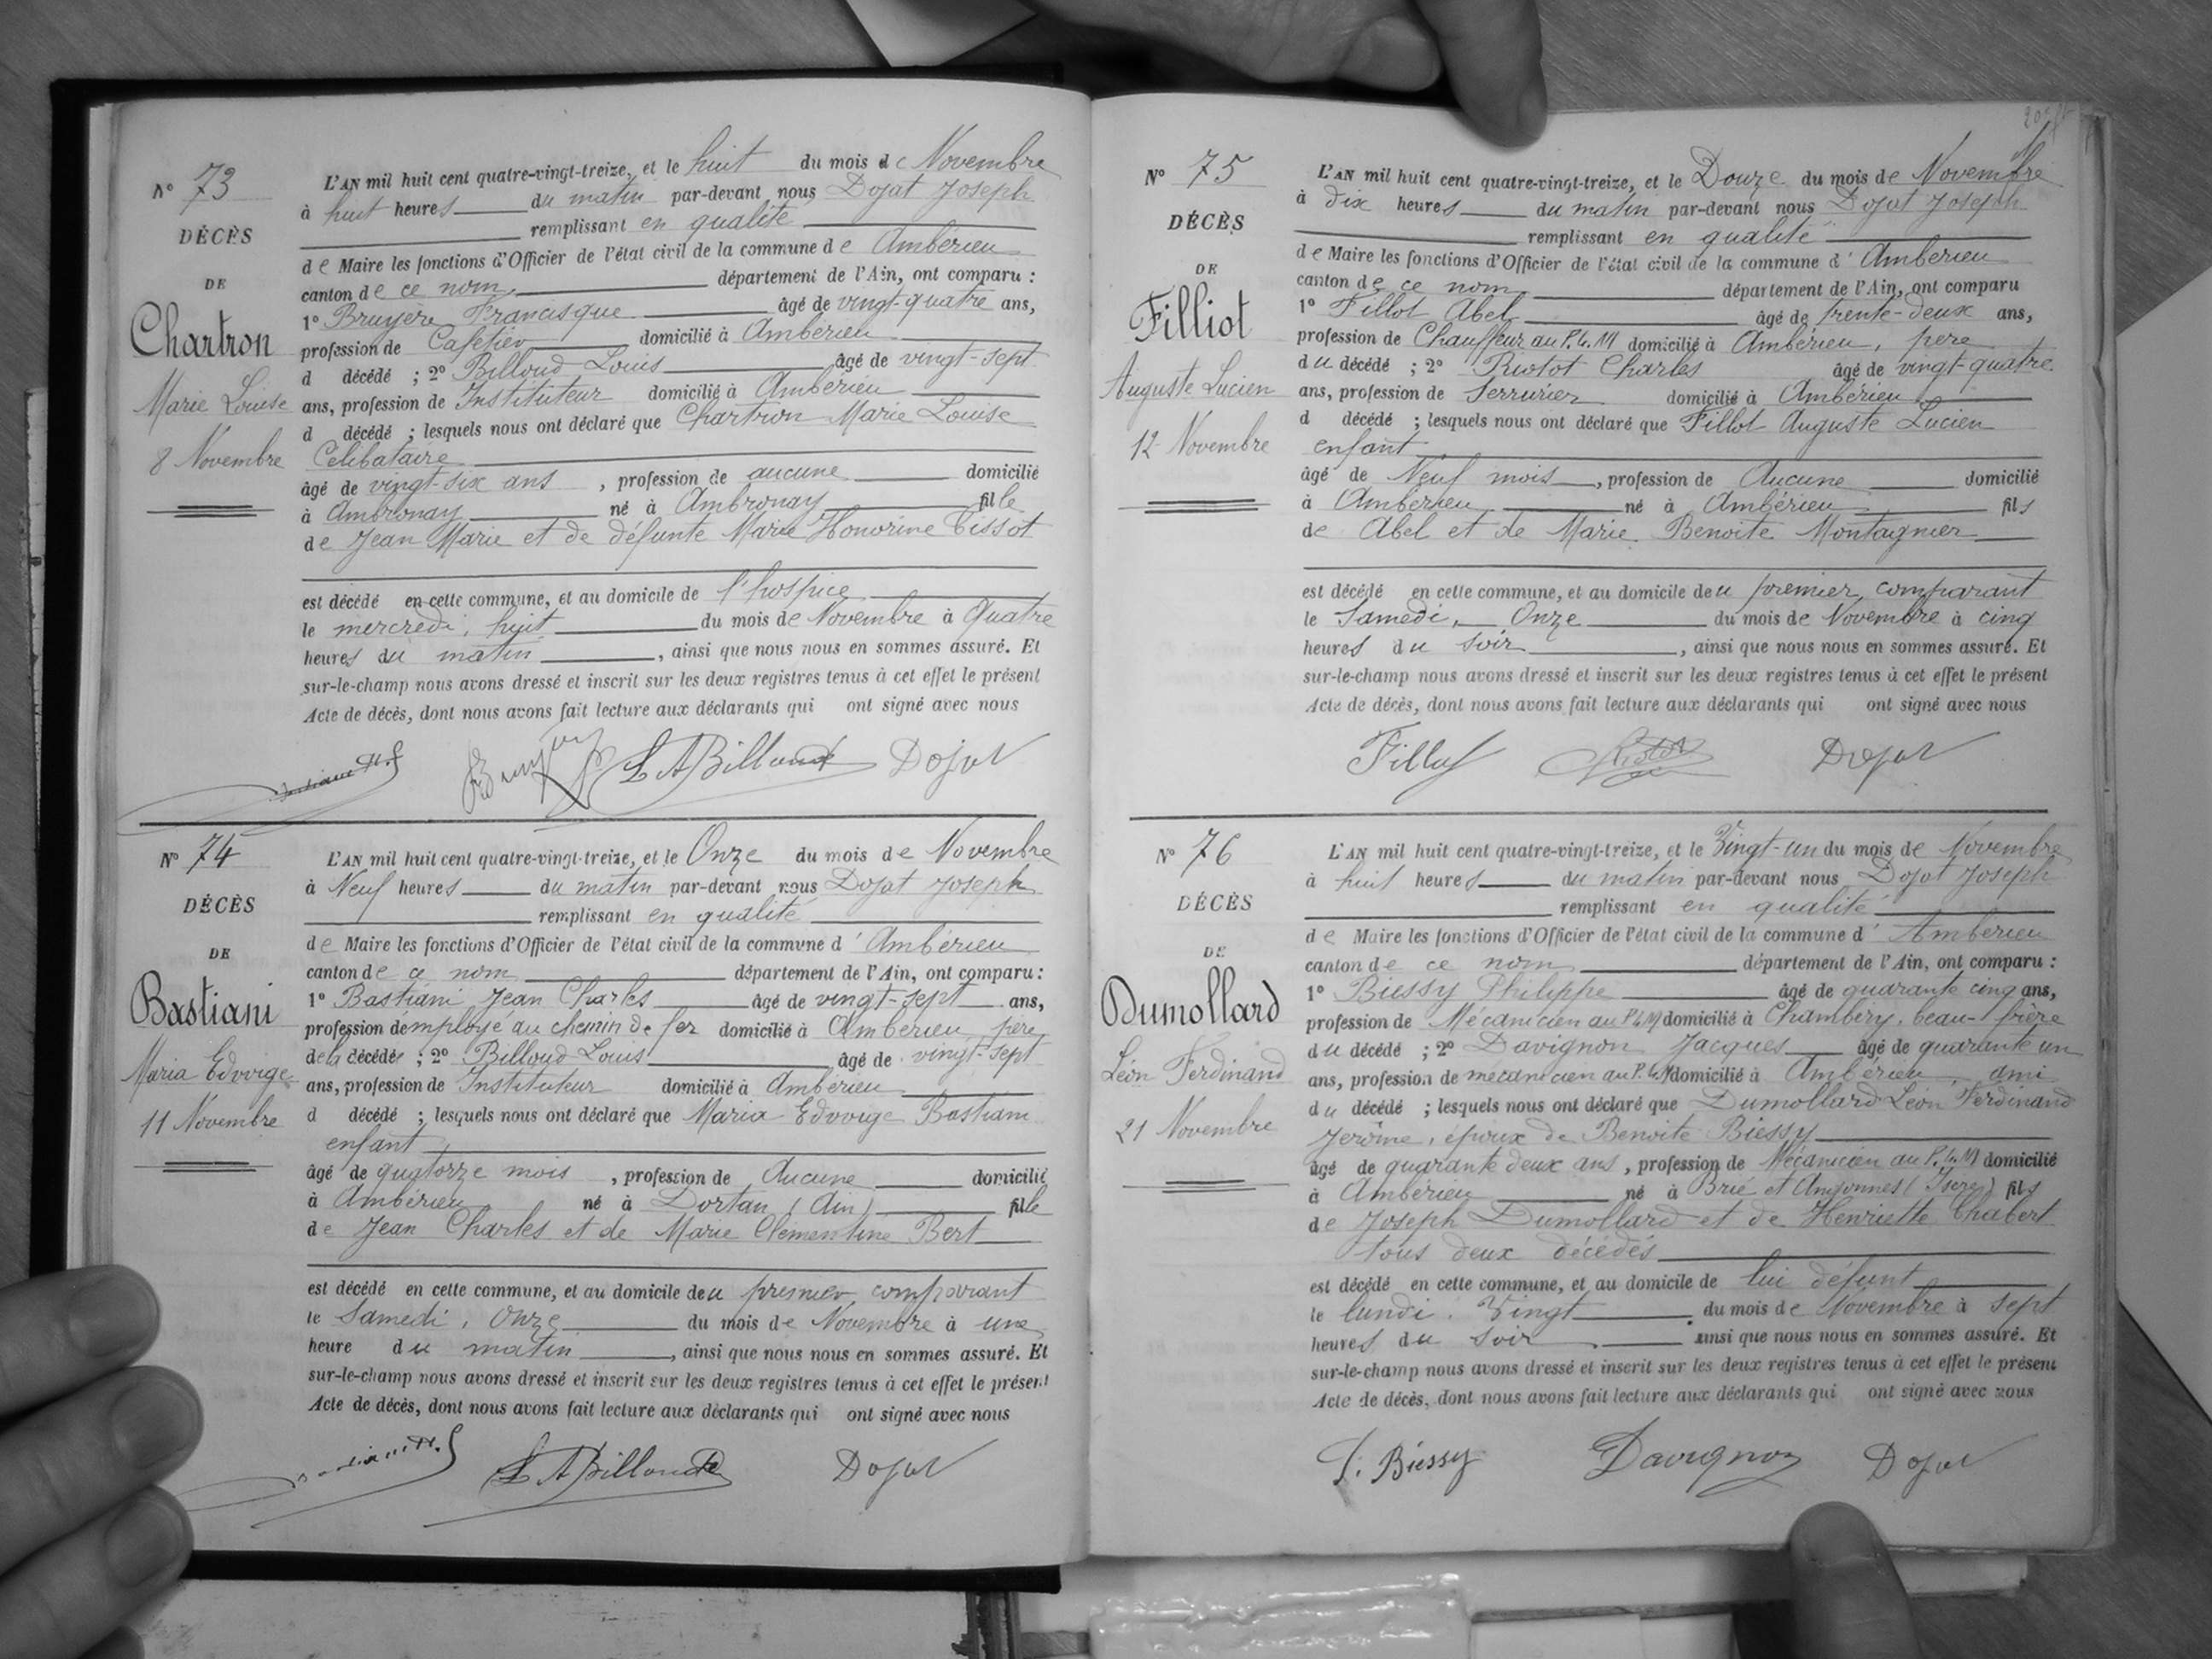 N° 73
DÉCÈS
DE
Chartron
Marie Louise
8 Novembre
L'AN mil huit cent quatre-vingt-treize, et le huit du mois de Novembre
à huit heures du matin par-devant nous Dojat Joseph
remplissant en qualité
de Maire les fonctions d'Officier de l'état civil de la commune de Ambérieu
canton de ce nom département de l'Ain, ont comparu :
1° Bruyère Francisque âgé de vingt-quatre ans,
profession de Cafetier domicilié à Ambérieu
d décédé ; 2° Billoud Louis âgé de vingt-sept
ans, profession de Instituteur domicilié à Ambérieu
d décédé ; lesquels nous ont déclaré que Chartron Marie Louise
Celibataire
âgé de vingt-six ans , profession de aucune domicilié
à Ambronay né à Ambronay fille
de Jean Marie et de défunte Marie Honorine Tissot
est décédé en cette commune, et au domicile de l'hospice
le mercredi, huit du mois de Novembre à Quatre
heures du matin , ainsi que nous nous en sommes assuré. Et
sur-le-champ nous avons dressé et inscrit sur les deux registres tenus à cet effet le présent
Acte de décès, dont nous avons fait lecture aux déclarants qui ont signé avec nous
L A Billoud Dojat
N° 74
DÉCÈS
DE
Bastiani
Maria Edwige
11 Novembre
L'AN mil huit cent quatre-vingt-treize, et le Onze du mois de Novembre
à Neuf heures du matin par-devant nous Dojat Joseph
remplissant en qualité
de Maire les fonctions d'Officier de l'état civil de la commune d' Ambérieu
canton de ce nom département de l'Ain, ont comparu :
1° Bastiani Jean Charles âgé de vingt-sept ans,
profession d'employé au chemin de fer domicilié à Ambérieu, père
de la décédée ; 2° Billoud Louis âgé de vingt-sept
ans, profession de Instituteur domicilié à Ambérieu
d décédé ; lesquels nous ont déclaré que Maria Edwige Bastiani
enfant
âgé de quatorze mois , profession de Aucune domicilié
à Ambérieu né à Dortan (Ain) fille
de Jean Charles et de Marie Clémentine Bert
est décédé en cette commune, et au domicile de u premier comparant
le Samedi, Onze du mois de Novembre à une
heure du matin , ainsi que nous nous en sommes assuré. Et
sur-le-champ nous avons dressé et inscrit sur les deux registres tenus à cet effet le présent
Acte de décès, dont nous avons fait lecture aux déclarants qui ont signé avec nous
L A Billoud Dojat
N° 75
DÉCÈS
DE
Filliot
Auguste Lucien
12 Novembre
L'AN mil huit cent quatre-vingt-treize, et le Douze du mois de Novembre
à dix heures du matin par-devant nous Dojat Joseph
remplissant en qualité
de Maire les fonctions d'Officier de l'état civil de la commune d' Ambérieu
canton de ce nom département de l'Ain, ont comparu
1° Fillot Abel âgé de trente-deux ans,
profession de Chauffeur au P.L.M domicilié à Ambérieu, père
du décédé ; 2° Riotot Charles âgé de vingt-quatre
ans, profession de Serrurier domicilié à Ambérieu
d décédé ; lesquels nous ont déclaré que Fillot Auguste Lucien
enfant
âgé de Neuf mois , profession de Aucune domicilié
à Ambérieu né à Ambérieu fils
de Abel et de Marie Benoite Montagnier
est décédé en cette commune, et au domicile de u premier comparant
le Samedi, Onze du mois de Novembre à cinq
heures du soir , ainsi que nous nous en sommes assuré. Et
sur-le-champ nous avons dressé et inscrit sur les deux registres tenus à cet effet le présent
Acte de décès, dont nous avons fait lecture aux déclarants qui ont signé avec nous
Fillot Riotot Dojat
N° 76
DÉCÈS
DE
Dumollard
Léon Ferdinand
21 Novembre
L'AN mil huit cent quatre-vingt-treize, et le Vingt-un du mois de Novembre
à huit heures du matin par-devant nous Dojat Joseph
remplissant en qualité
de Maire les fonctions d'Officier de l'état civil de la commune d' Ambérieu
canton de ce nom département de l'Ain, ont comparu :
1° Biessy Philippe âgé de quarante cinq ans,
profession de Mécanicien au P.L.M domicilié à Chambéry, beau-frère
du décédé ; 2° Davignon Jacques âgé de quarante un
ans, profession de mécanicien au P.L.M domicilié à Ambérieu, ami
du décédé ; lesquels nous ont déclaré que Dumollard Léon Ferdinand
Jerôme, époux de Benoite Biessy
âgé de quarante deux ans , profession de Mécanicien au P.L.M domicilié
à Ambérieu né à Brié et Angonnes (Isère) fils
de Joseph Dumollard et de Henriette Chabert
tous deux décédés
est décédé en cette commune, et au domicile de lui défunt
le lundi, Vingt du mois de Novembre à sept
heures du soir ainsi que nous nous en sommes assuré. Et
sur-le-champ nous avons dressé et inscrit sur les deux registres tenus à cet effet le présent
Acte de décès, dont nous avons fait lecture aux déclarants qui ont signé avec nous
P. Biessy Davignon Dojat